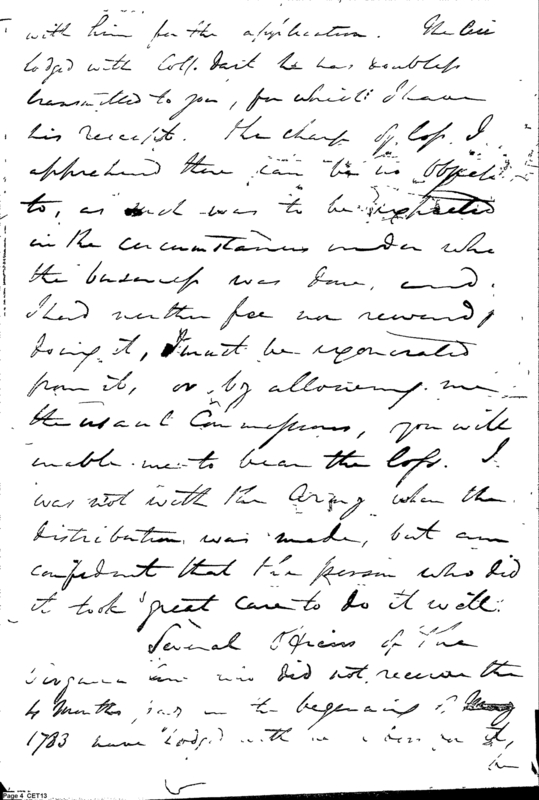 with him for the application. The
lodged with Coll. he has doubtless
transmitted to you, for which I have
his receipt. The charge of loss I
apprehend there can be no objection
to, as such was to be expected
in the circumstances under
the business was done, and
I had neither fee nor reward
doing it, I must be exonerated
from it, or by allowing me
the usual Commissions, you will
enable me to bear the loss. I
was not with the Army when the
distribution was made, but am
confident that the person who did
it took great care to do it well.
Several Officers of the
Virginia Line who did not receive the
4 Months pay in the beginning of
1783 have lodged with me
Page 4 CET13